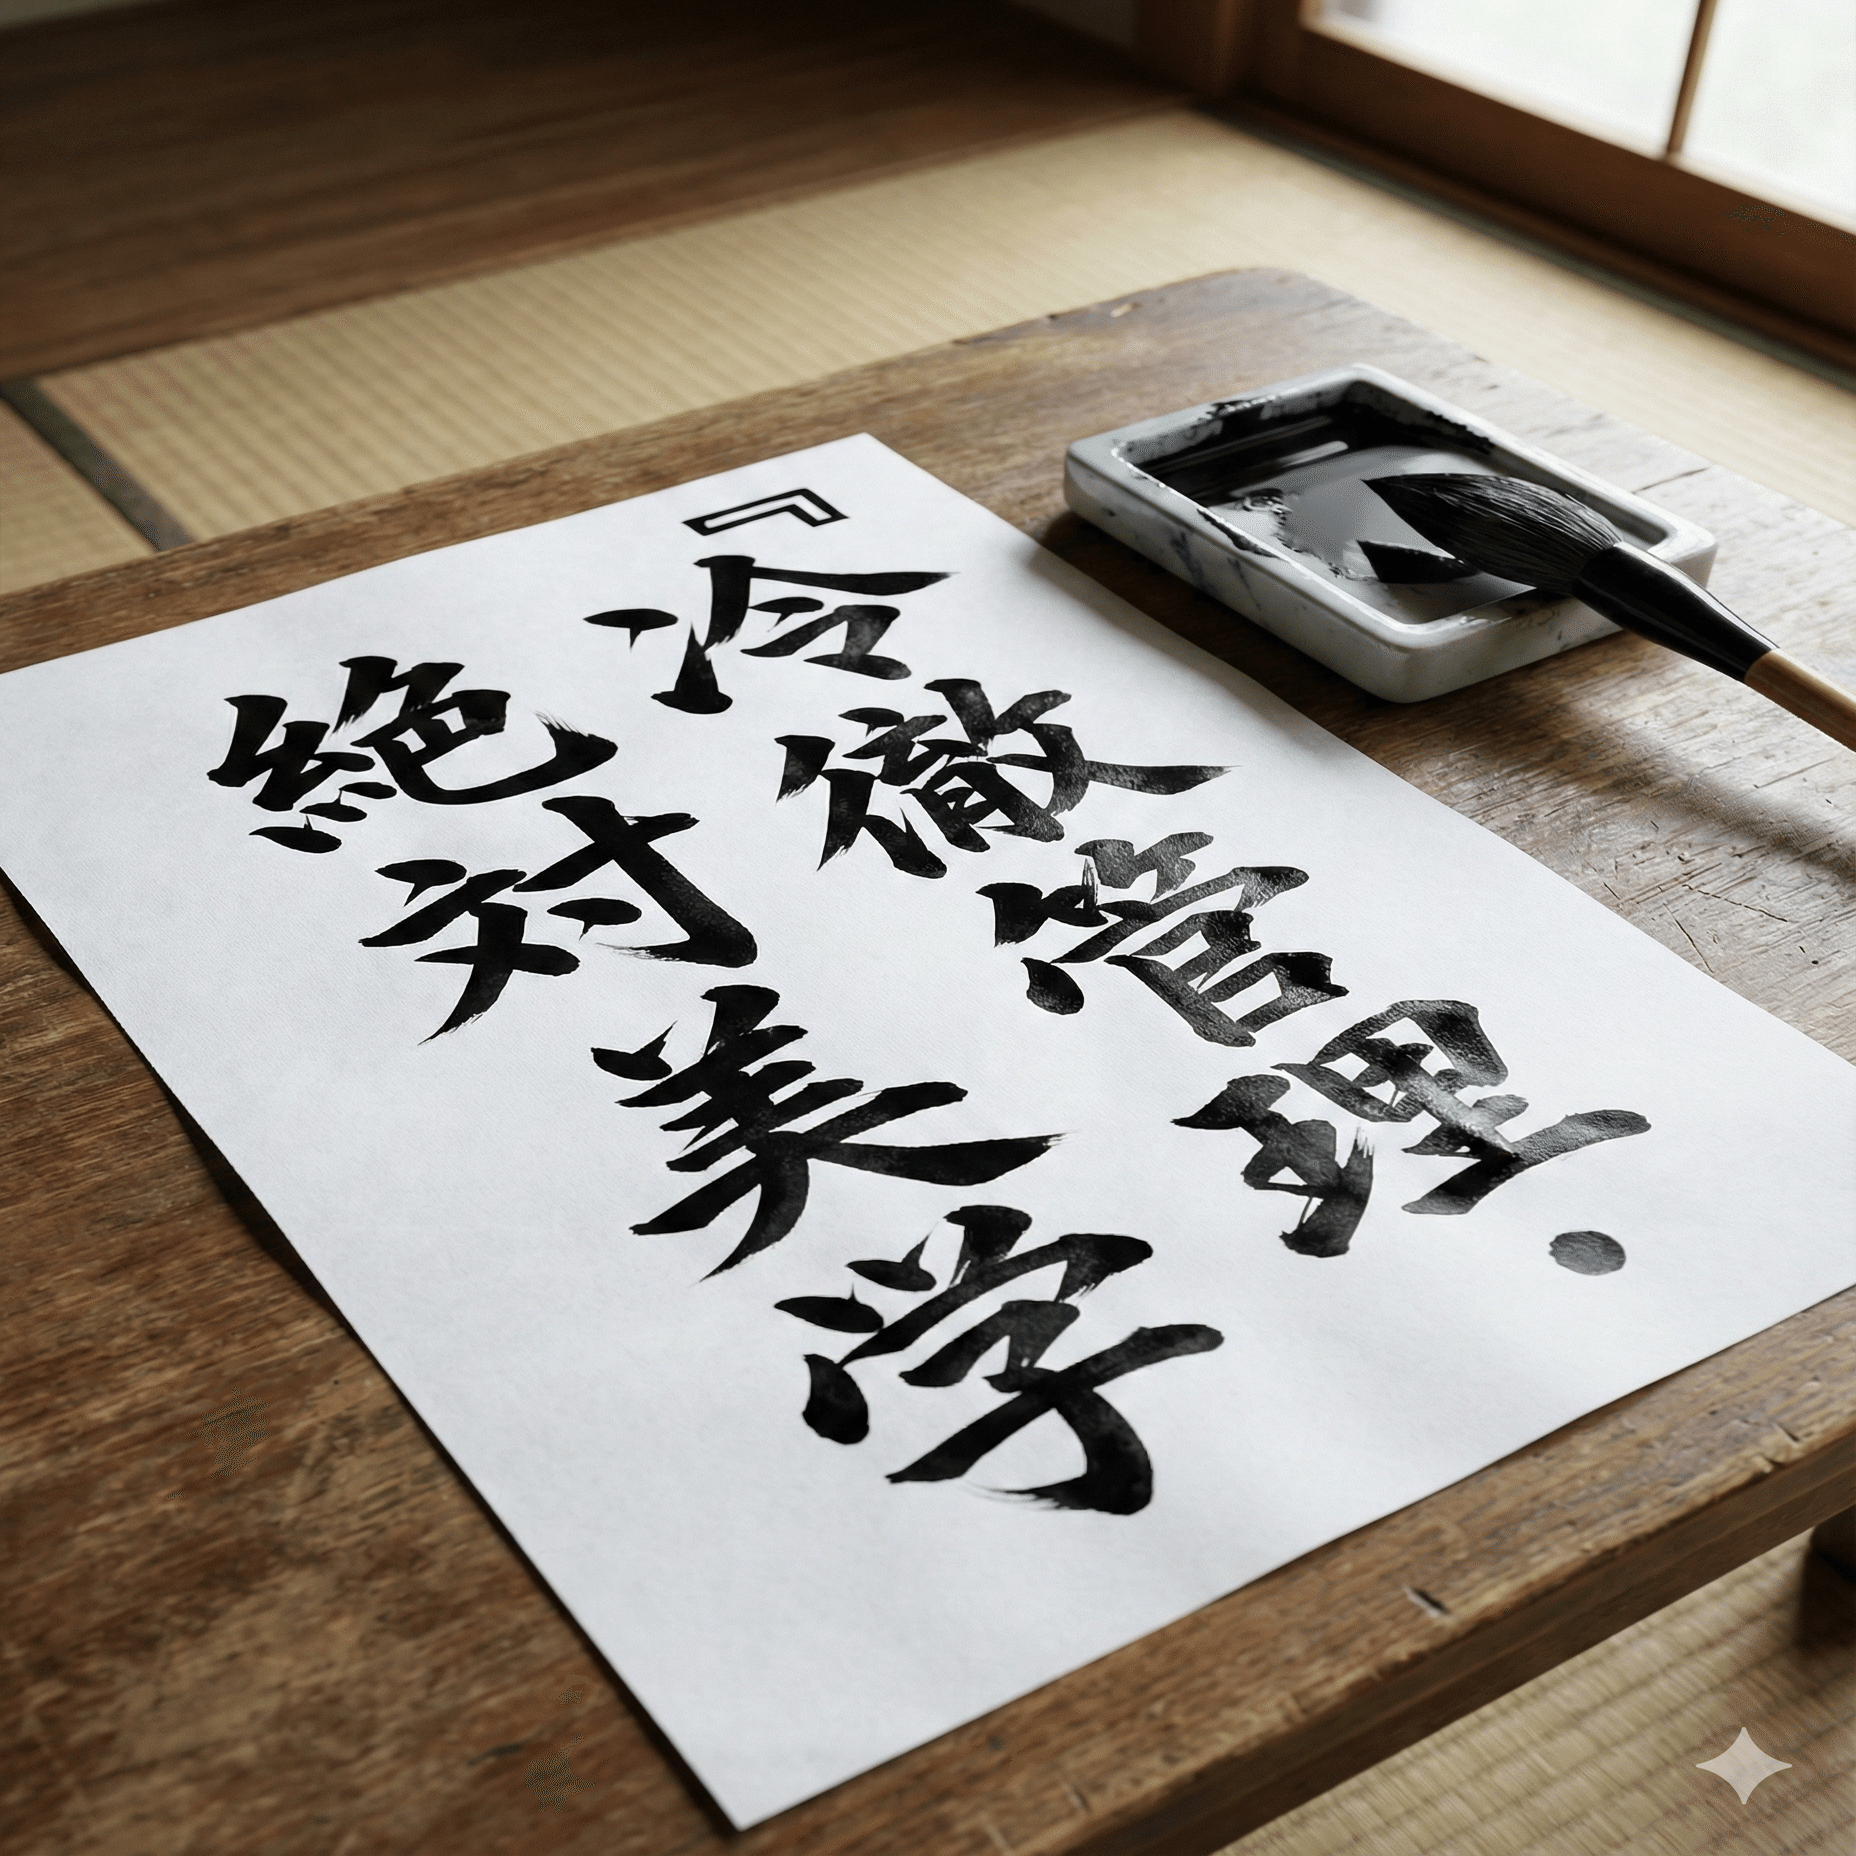 『冷徹管理・
絶対美学